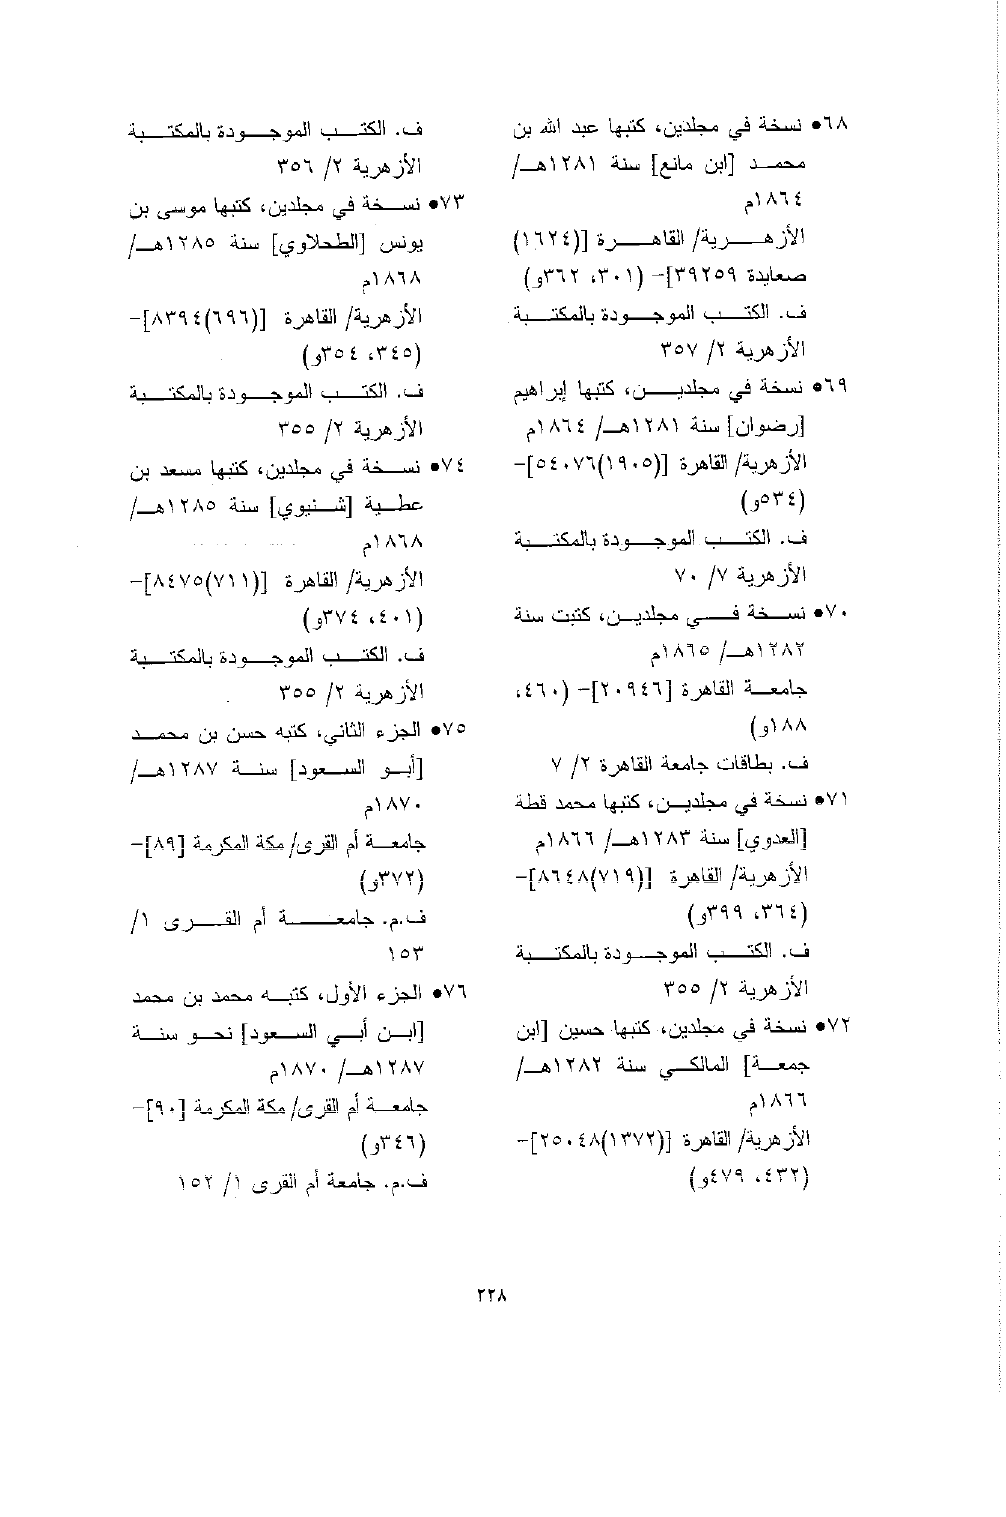 ٦٨• نسخة في مجلدين، كتبها عبد الله بن
محمد [ابن مانع] سنة ١٢٨١هـ/
١٨٦٤م
الأزهرية/ القاهرة [(١٦٢٤)
صعايدة ٣٩٢٥٩]- (٣٠١، ٣٦٢و)
ف. الكتب الموجودة بالمكتبة
الأزهرية ٢/ ٣٥٧
٦٩• نسخة في مجلدين، كتبها إبراهيم
[رضوان] سنة ١٢٨١هـ/ ١٨٦٤م
الأزهرية/ القاهرة [(١٩٠٥)٥٤٠٧٦]-
(٥٣٤و)
ف. الكتب الموجودة بالمكتبة
الأزهرية ٧/ ٧٠
٧٠• نسخة في مجلدين، كتبت سنة
١٢٨٢هـ/ ١٨٦٥م
جامعة القاهرة [٢٠٩٤٦]- (٤٦٠،
١٨٨و)
ف. بطاقات جامعة القاهرة ٢/ ٧
٧١• نسخة في مجلدين، كتبها محمد قطة
[العدوي] سنة ١٢٨٣هـ/ ١٨٦٦م
الأزهرية/ القاهرة [(٧١٩)٨٦٤٨]-
(٣٦٤، ٣٩٩و)
ف. الكتب الموجودة بالمكتبة
الأزهرية ٢/ ٣٥٥
٧٢• نسخة في مجلدين، كتبها حسين [ابن
جمعة] المالكي سنة ١٢٨٢هـ/
١٨٦٦م
الأزهرية/ القاهرة [(١٣٧٢)٢٥٠٤٨]-
(٤٣٢، ٤٧٩و)
ف. الكتب الموجودة بالمكتبة
الأزهرية ٢/ ٣٥٦
٧٣• نسخة في مجلدين، كتبها موسى بن
يونس [الطحلاوي] سنة ١٢٨٥هـ/
١٨٦٨م
الأزهرية/ القاهرة [(٦٩٦)٨٣٩٤]-
(٣٤٥، ٣٥٤و)
ف. الكتب الموجودة بالمكتبة
الأزهرية ٢/ ٣٥٥
٧٤• نسخة في مجلدين، كتبها مسعد بن
عطية [شنيوي] سنة ١٢٨٥هـ/
١٨٦٨م
الأزهرية/ القاهرة [(٧١١)٨٤٧٥]-
(٤٠١، ٣٧٤و)
ف. الكتب الموجودة بالمكتبة
الأزهرية ٢/ ٣٥٥
٧٥• الجزء الثاني، كتبه حسن بن محمد
[أبو السعود] سنة ١٢٨٧هـ/
١٨٧٠م
جامعة أم القرى/ مكة المكرمة [٨٩]-
(٣٧٢و)
ف.م. جامعة أم القرى ١/
١٥٣
٧٦• الجزء الأول، كتبه محمد بن محمد
[ابن أبي السعود] نحو سنة
١٢٨٧هـ/ ١٨٧٠م
جامعة أم القرى/ مكة المكرمة [٩٠]-
(٣٤٦و)
ف.م. جامعة أم القرى ١/ ١٥٢
٢٢٨